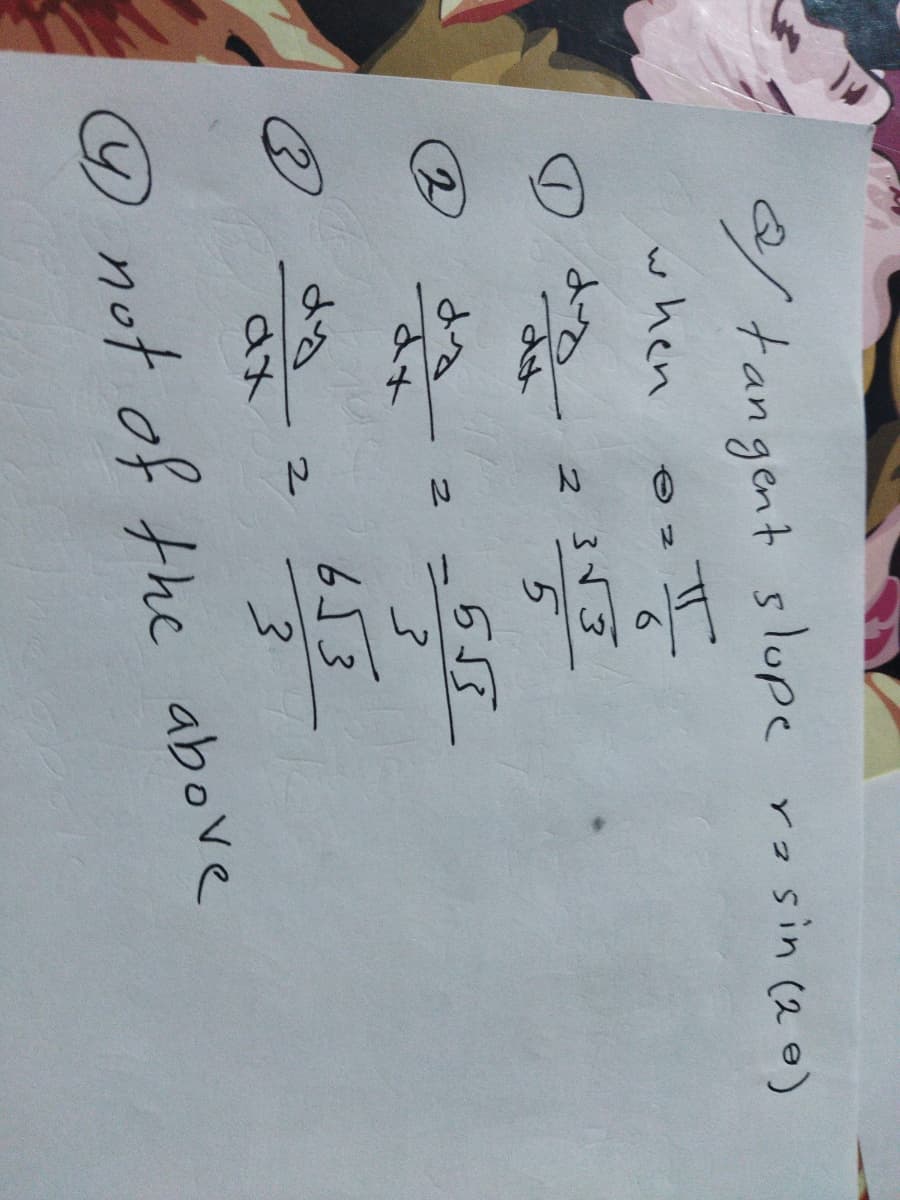 Q/ tangent slope r = sin(2θ)
when θ = π/6
① dy/dx = 3√3/5
② dy/dx = -5√3/3
③ dy/dx = 6√3/3
④ not of the above